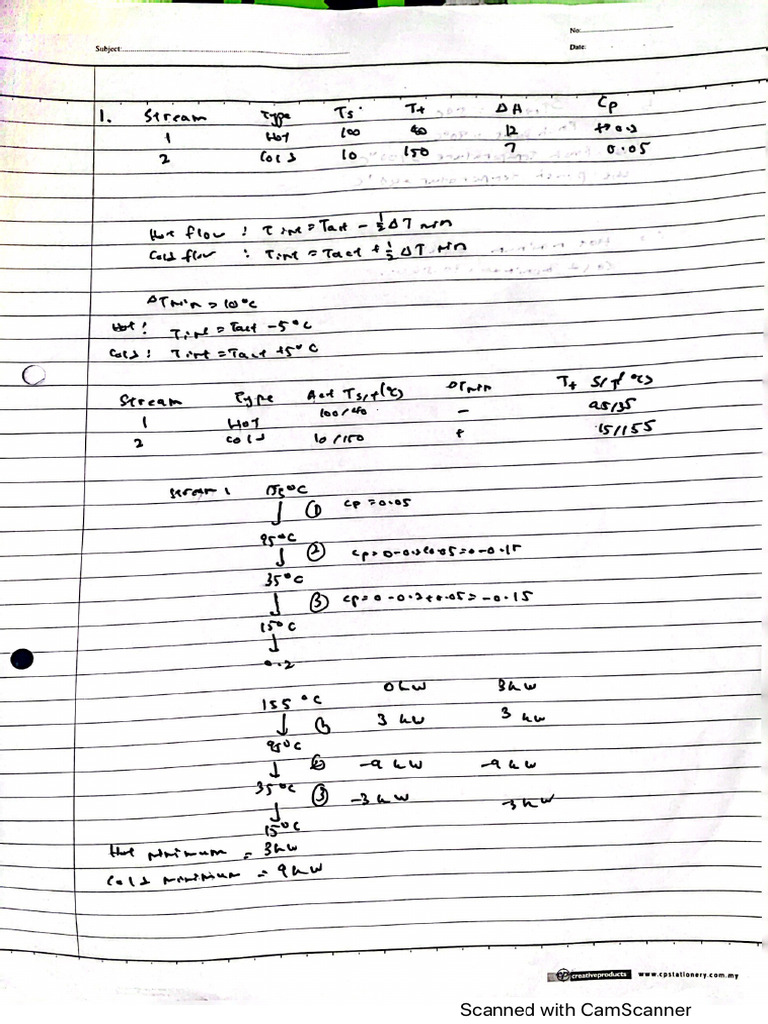 No:
Subject:
Date:
1. Stream Type Ts Tt ΔH Cp
1 Hot 100 40 12 0.2
2 Cold 10 150 7 0.05
Hot flow : Tint = Tact - ½ΔT min
Cold flow : Tint = Tact + ½ΔT min
ΔTmin = 10°C
Hot : Tint = Tact - 5°C
Cold : Tint = Tact + 5°C
Stream Type Act Ts/t (°C) ΔTmin Tt S/T (°C)
1 Hot 100/40 - 95/35
2 Cold 10/150 + 15/155
stream 1 155°C
↓ ① Cp = 0.05
95°C
↓ ②
35°C
↓ ③ Cp = 0 - 0.2 + 0.05 = -0.15
15°C
↓
0.2
155°C 0kW 3kW
↓ ① 3 kW 3 kW
95°C
↓ ② -9 kW -9 kW
35°C ③ -3 kW -3 kW
↓
15°C
Hot minimum = 3kW
Cold minimum = 9kW
cp creativeproducts www.cpstationery.com.my
Scanned with CamScanner